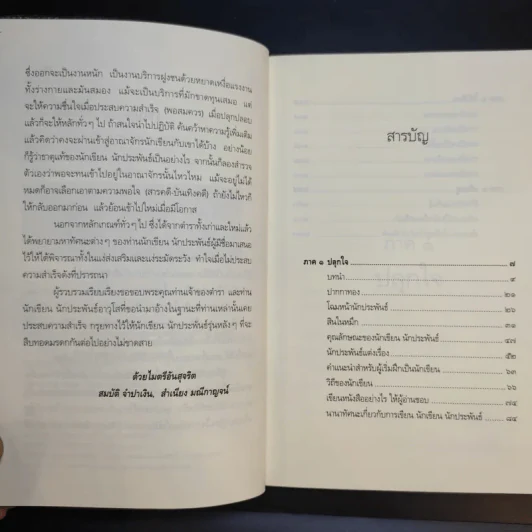 ซึ่งออกจะเป็นงานหนัก เป็นงานบริการฝูงชนด้วยหยาดเหงื่อแรงงาน
ทั้งร่างกายและมันสมอง แม้จะเป็นบริการที่มักขาดทุนเสมอ แต่
จะให้ความชื่นใจเมื่อประสบความสำเร็จ (พอสมควร) เมื่อปลุกปลอบ
แล้วก็จะให้หลักทั่วๆ ไป ถ้าสนใจนำไปปฏิบัติ ค้นคว้าหาความรู้เพิ่มเติม
แล้วคิดว่าคงจะผ่านเข้าสู่อาณาจักรนักเขียนกับเขาได้บ้าง อย่างน้อย
ก็รู้ว่าธาตุแท้ของนักเขียน นักประพันธ์เป็นอย่างไร จากนั้นก็ลองสำรวจ
ตัวเองว่าพอจะทนเข้าไปอยู่ในอาณาจักรนั้นไหวไหม แม้จะอยู่ไม่ได้
หมดก็อาจเลือกเอาตามความพอใจ (สารคดี-บันเทิงคดี) ถ้ายังไม่ไหวก็
ให้กลับออกมาก่อน แล้วย้อนเข้าไปใหม่เมื่อมีโอกาส
นอกจากหลักเกณฑ์ทั่วๆ ไป ซึ่งได้จากตำราทั้งเก่าและใหม่แล้ว
ได้พยายามหาทัศนะต่างๆ ของท่านนักเขียน นักประพันธ์ผู้มีชื่อมาเสนอ
ไว้ให้ได้พิจารณาทั้งในแง่ส่งเสริมและแง่ระมัดระวัง ทำใจเมื่อไม่ประสบ
ความสำเร็จดังที่ปรารถนา
ผู้รวบรวมเรียบเรียงขอขอบพระคุณท่านเจ้าของตำรา และท่าน
นักเขียน นักประพันธ์อาวุโสที่ขอนำมาอ้างในฐานะที่ท่านเหล่านั้นเคย
ประสบความสำเร็จ กรุยทางไว้ให้นักเขียน นักประพันธ์รุ่นหลังๆ ที่จะ
สืบทอดมรดกกันต่อไปอย่างไม่ขาดสาย
ด้วยไมตรีอันสุจริต
สมบัติ จำปาเงิน, สำเนียง มณีกาญจน์
สารบัญ
ภาค ๑ ปลุกใจ ๗
บทนำ ๙
ปากกาทอง ๒๑
โฉมหน้านักประพันธ์ ๒๖
สินในหมึก ๓๑
คุณลักษณะของนักเขียน นักประพันธ์ ๔๗
นักประพันธ์แต่งเรื่อง ๕๒
คำแนะนำสำหรับผู้เริ่มฝึกเป็นนักเขียน ๖๓
วิถีของนักเขียน ๗๐
เขียนหนังสืออย่างไร ให้ผู้อ่านชอบ ๗๕
นานาทัศนะเกี่ยวกับการเขียน นักเขียน นักประพันธ์ ๘๔